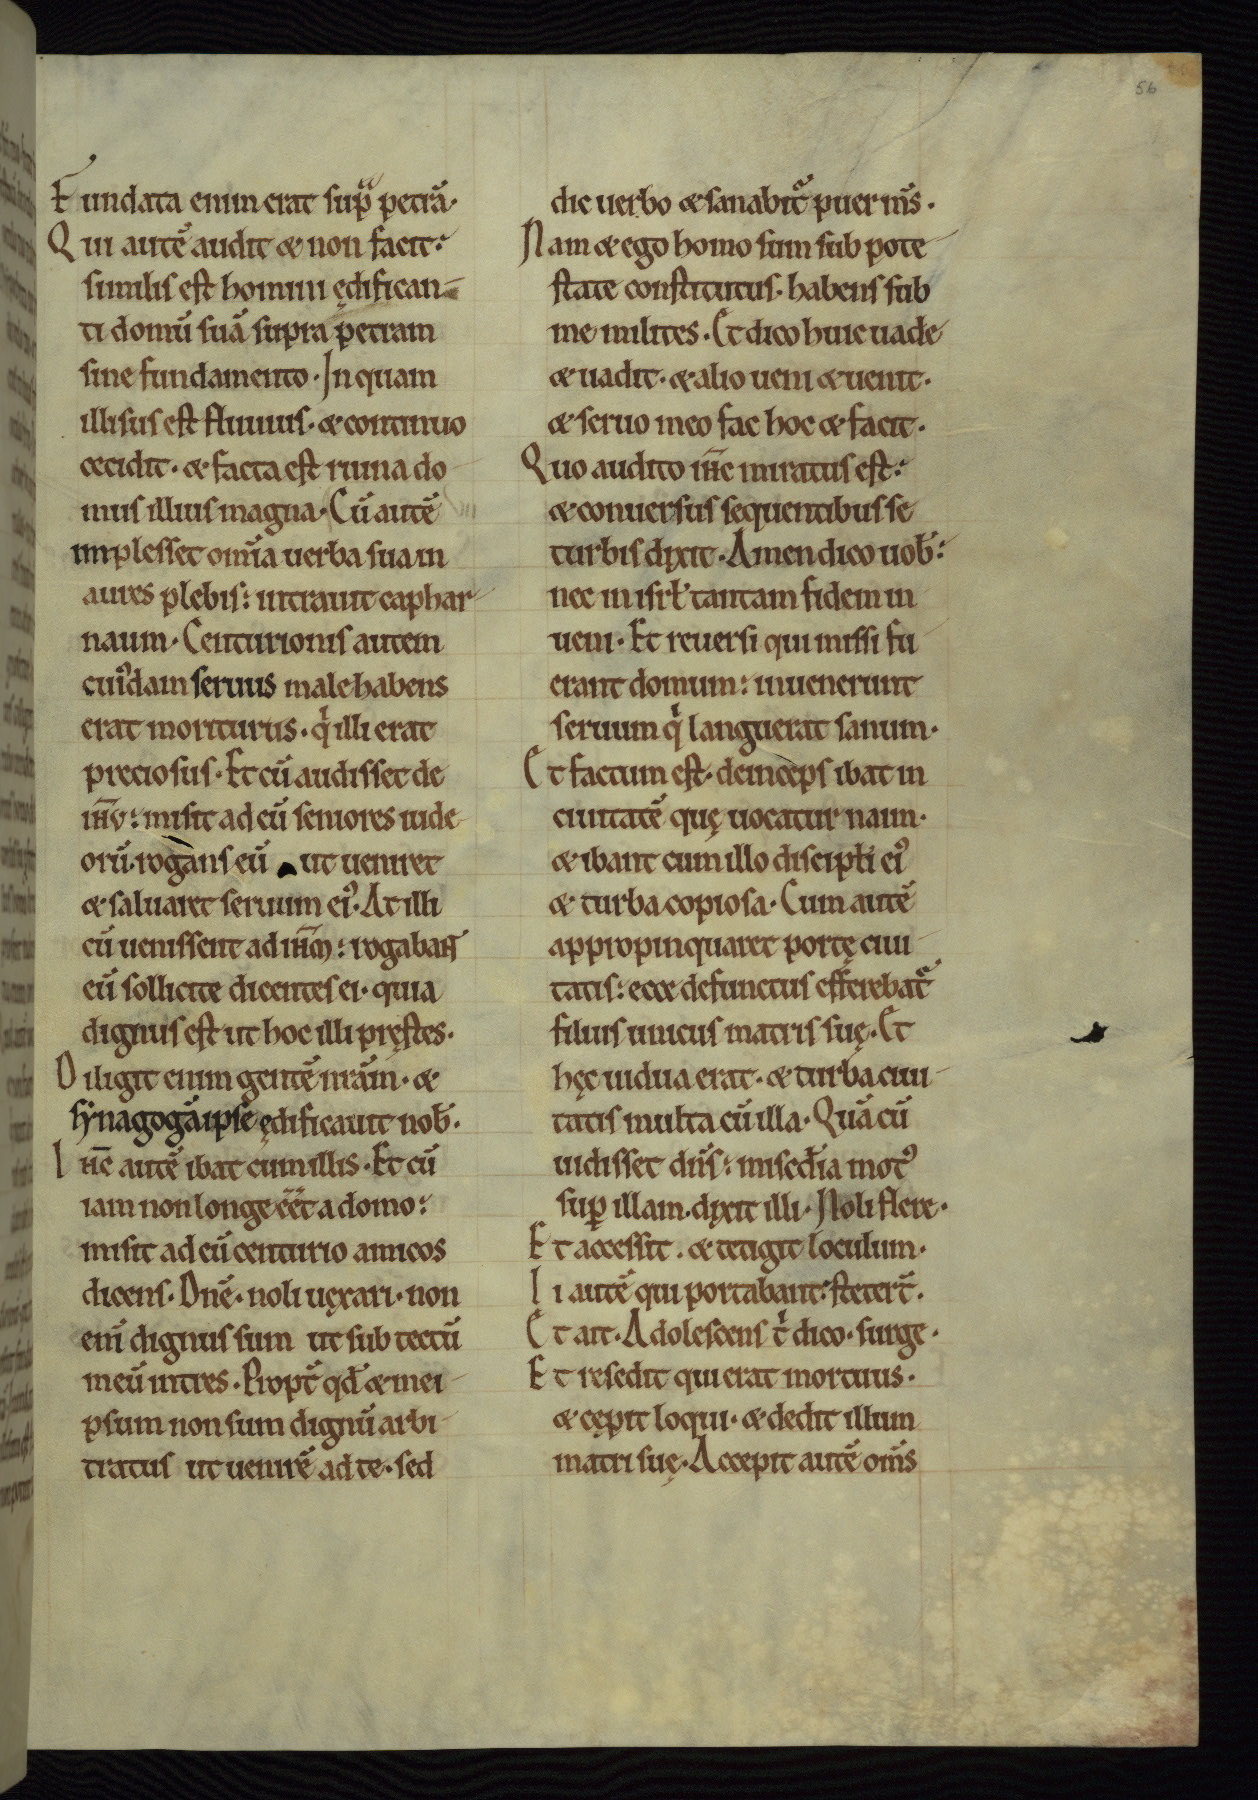 56
Fundata enim erat sup̃ petrā·
Qui autē audit & non facit:
similis est homini ędifican-
ti domū suā supra petram
sine fundamento· In quam
illisus est fluuius· & continuo
cecidit· & facta est ruina do-
mus illius magna· Cū autē
implesset om̄ia uerba sua in
aures plebis: intrauit caphar-
naum· Centurionis autem
cui᷒dam seruus male habens
erat moriturus· qͥ illi erat
preciosus· Et cū audisset de
ih̄u: misit ad eū seniores iude-
orū· rogans eū ut ueniret
& saluaret seruum ei᷒· At illi
cū uenissent ad ih̄m: rogabant
eū sollicite dicentes ei· quia
dignus est ut hoc illi pręstes·
Diligit enim gentē nr̄am· &
synagogā ipse ędificauit nob̄·
Ih̄c autē ibat cum illis· Et cū
iam non longe ēēt a domo:
misit ad eū centurio amicos
dicens· Dn̄e· noli uęxari· non
eni̅ dignus sum ut sub tectū
meū intres· Propt̄ qd̄ & mei-
psum non sum dignū arbi-
tratus ut uenirē ad te· sed
dic uerbo & sanabit̃ puer m̄s·
Nam & ego homo sum sub pote-
state constitutus· habens sub
me milites· Et dico huic uade
& uadit· & alio ueni & uenit·
& seruo meo fac hoc & facit·
Quo audito ih̄c miratus est:
& conuersus sequentibus se
turbis dixit· Amen dico uob̄:
nec in isrł tantam fidem in-
ueni· Et reuersi qui missi fu-
erant domum: inuenerunt
seruum qͥ languerat sanum·
Et factum est· deinceps ibat in
ciuitatē quę uocatur naim·
& ibant cum illo discipłi ei᷒
& turba copiosa· Cum autē
appropinquaret portę ciui-
tatis: ecce defunctus efferebat̃
filius unicus matris suę· Et
hęc uidua erat· & turba ciui-
tatis multa cū illa· Quā cū
uidisset dn̄s: misedia mot᷒
sup̱ illam· dixit illi· Noli flere·
Et accessit· & tetigit loculum·
Ii autē qui portabant: steter̄t·
Et ait· Adolescens tͥ dico· surge·
Et resedit qui erat mortuus·
& cępit loqui· & dedit illum
matri suę· Accepit autē om̄s